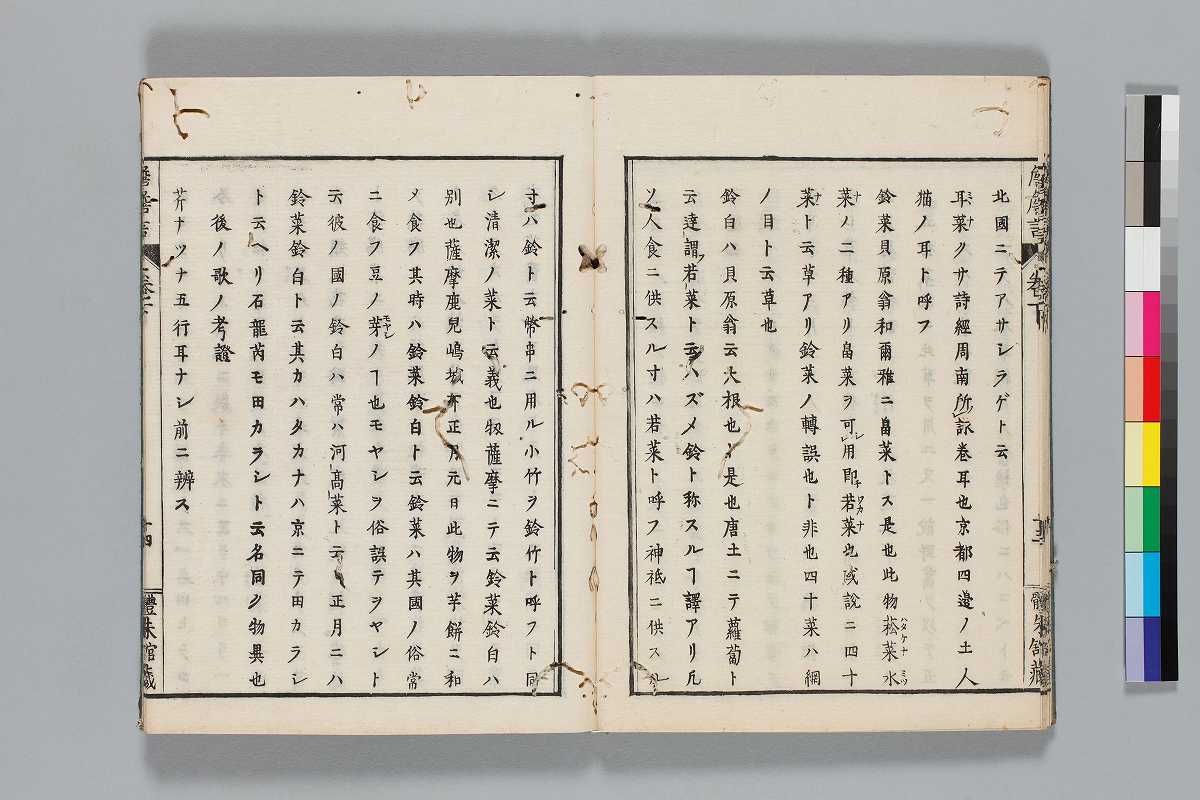 北國ニテアサシラゲト云
耳菜クサ詩經周南所詠巻耳也京都四邉ノ土人
猫ノ耳ト呼フ
鈴菜貝原翁和爾雅ニ畠菜トス是也此物菘菜水
菜ノ二種アリ畠菜ヲ可用即若菜也或説ニ四十
菜ト云草アリ鈴菜ノ轉誤也ト非也四十菜ハ網
ノ目ト云草也
鈴白ハ貝原翁云大根也ト是也唐土ニテ蘿蔔ト
云達謂若菜ト云ハズメ鈴ト称スルヿ譯アリ凢
ソ人食ニ供スル寸ハ若菜ト呼フ神祗ニ供スル
寸ハ鈴ト云幣串ニ用ル小竹ヲ鈴竹ト呼フト同
シ清潔ノ菜ト云義也扨薩摩ニテ云鈴菜鈴白ハ
別也薩摩鹿兒嶋城下正月元日此物ヲ芋餅ニ和
メ食フ其時ハ鈴菜鈴白ト云鈴菜ハ其國ノ俗常
ニ食フ豆ノ芽ノヿ也モヤシヲ俗誤テヲヤシト
云彼ノ國ノ鈴白ハ常ハ河髙菜ト云正月ニハ
鈴菜鈴白ト云其カハタカナハ京ニテ田カラシ
ト云ヘリ石龍芮モ田カラシト云名同シ物異也
後ノ歌ノ考證
芥ナツナ五行耳ナシ前ニ辨ス
十四
體朱舘藏